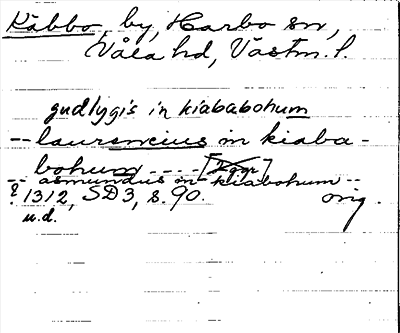 Käbbo, by, Harbo sn,
Våla hd, Västm. l.
gudlygis in kiababohum
-- laurencius in kiaba-
bohum ---- [2 ggr]
-- asmundus in kiababohum --
? 1312, SD3, s. 90. orig.
u.d.